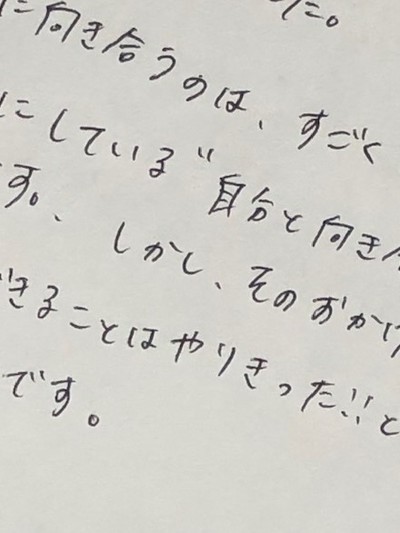 た。
に向き合うのは、すごく
にしている"自分と向き
す。、しかし、そのおかげ
きることはやりきった!!と
です。